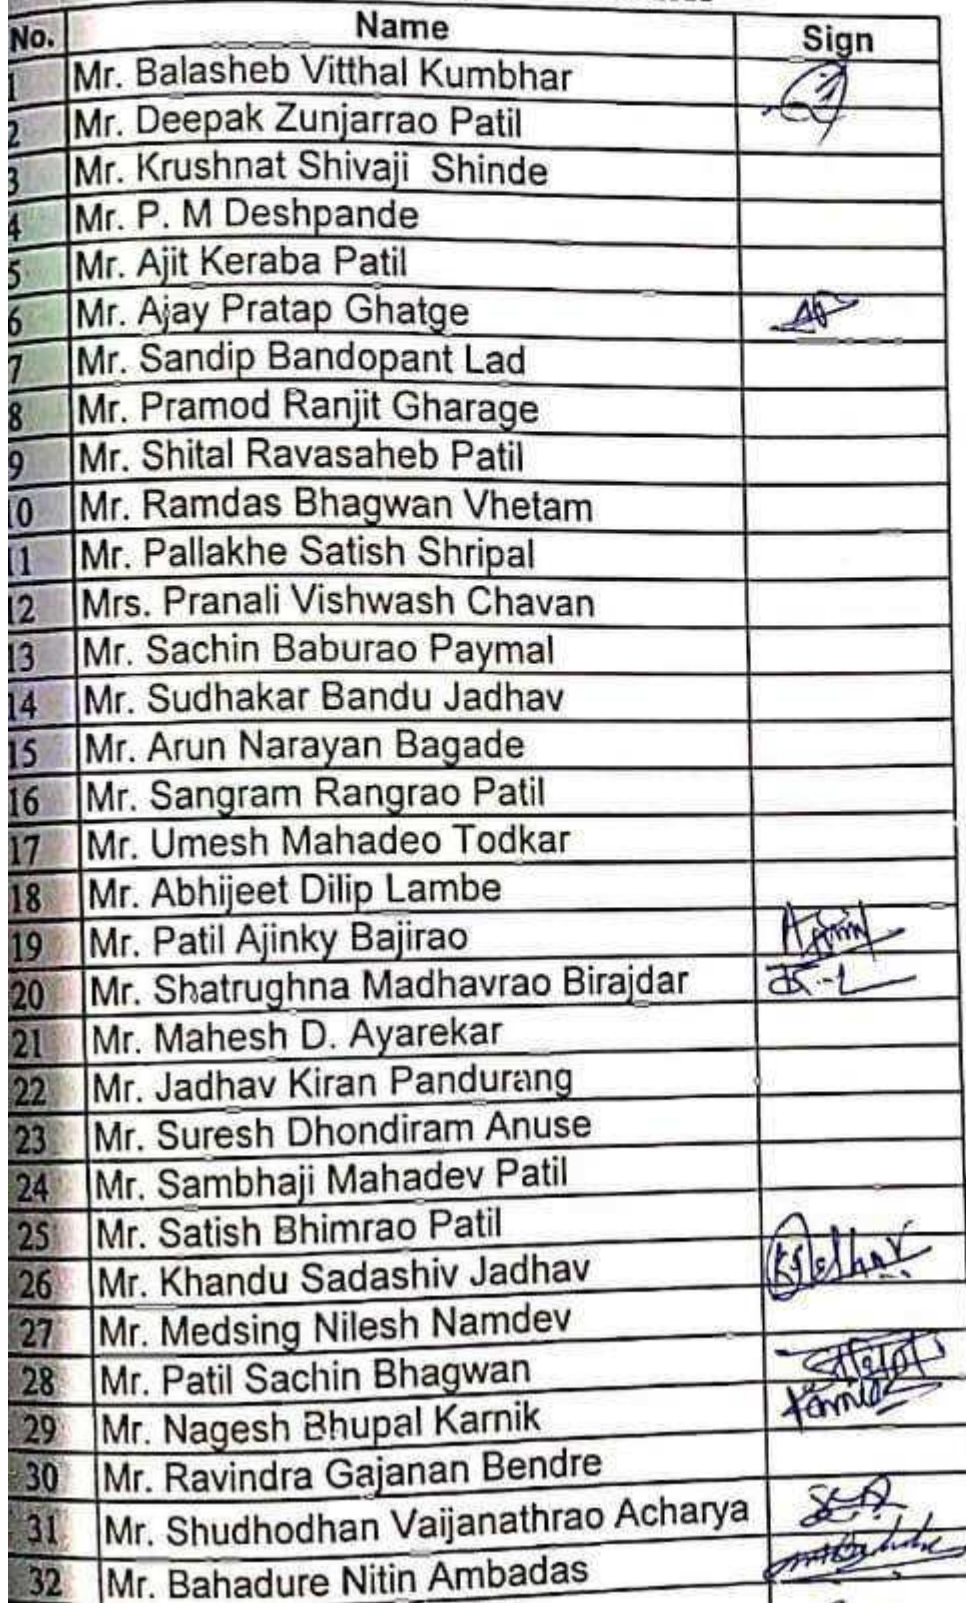 No. Name Sign
1 Mr. Balasheb Vitthal Kumbhar
2 Mr. Deepak Zunjarrao Patil
3 Mr. Krushnat Shivaji Shinde
4 Mr. P. M Deshpande
5 Mr. Ajit Keraba Patil
6 Mr. Ajay Pratap Ghatge
7 Mr. Sandip Bandopant Lad
8 Mr. Pramod Ranjit Gharage
9 Mr. Shital Ravasaheb Patil
10 Mr. Ramdas Bhagwan Vhetam
11 Mr. Pallakhe Satish Shripal
12 Mrs. Pranali Vishwash Chavan
13 Mr. Sachin Baburao Paymal
14 Mr. Sudhakar Bandu Jadhav
15 Mr. Arun Narayan Bagade
16 Mr. Sangram Rangrao Patil
17 Mr. Umesh Mahadeo Todkar
18 Mr. Abhijeet Dilip Lambe
19 Mr. Patil Ajinky Bajirao
20 Mr. Shatrughna Madhavrao Birajdar
21 Mr. Mahesh D. Ayarekar
22 Mr. Jadhav Kiran Pandurang
23 Mr. Suresh Dhondiram Anuse
24 Mr. Sambhaji Mahadev Patil
25 Mr. Satish Bhimrao Patil
26 Mr. Khandu Sadashiv Jadhav
27 Mr. Medsing Nilesh Namdev
28 Mr. Patil Sachin Bhagwan
29 Mr. Nagesh Bhupal Karnik
30 Mr. Ravindra Gajanan Bendre
31 Mr. Shudhodhan Vaijanathrao Acharya
32 Mr. Bahadure Nitin Ambadas